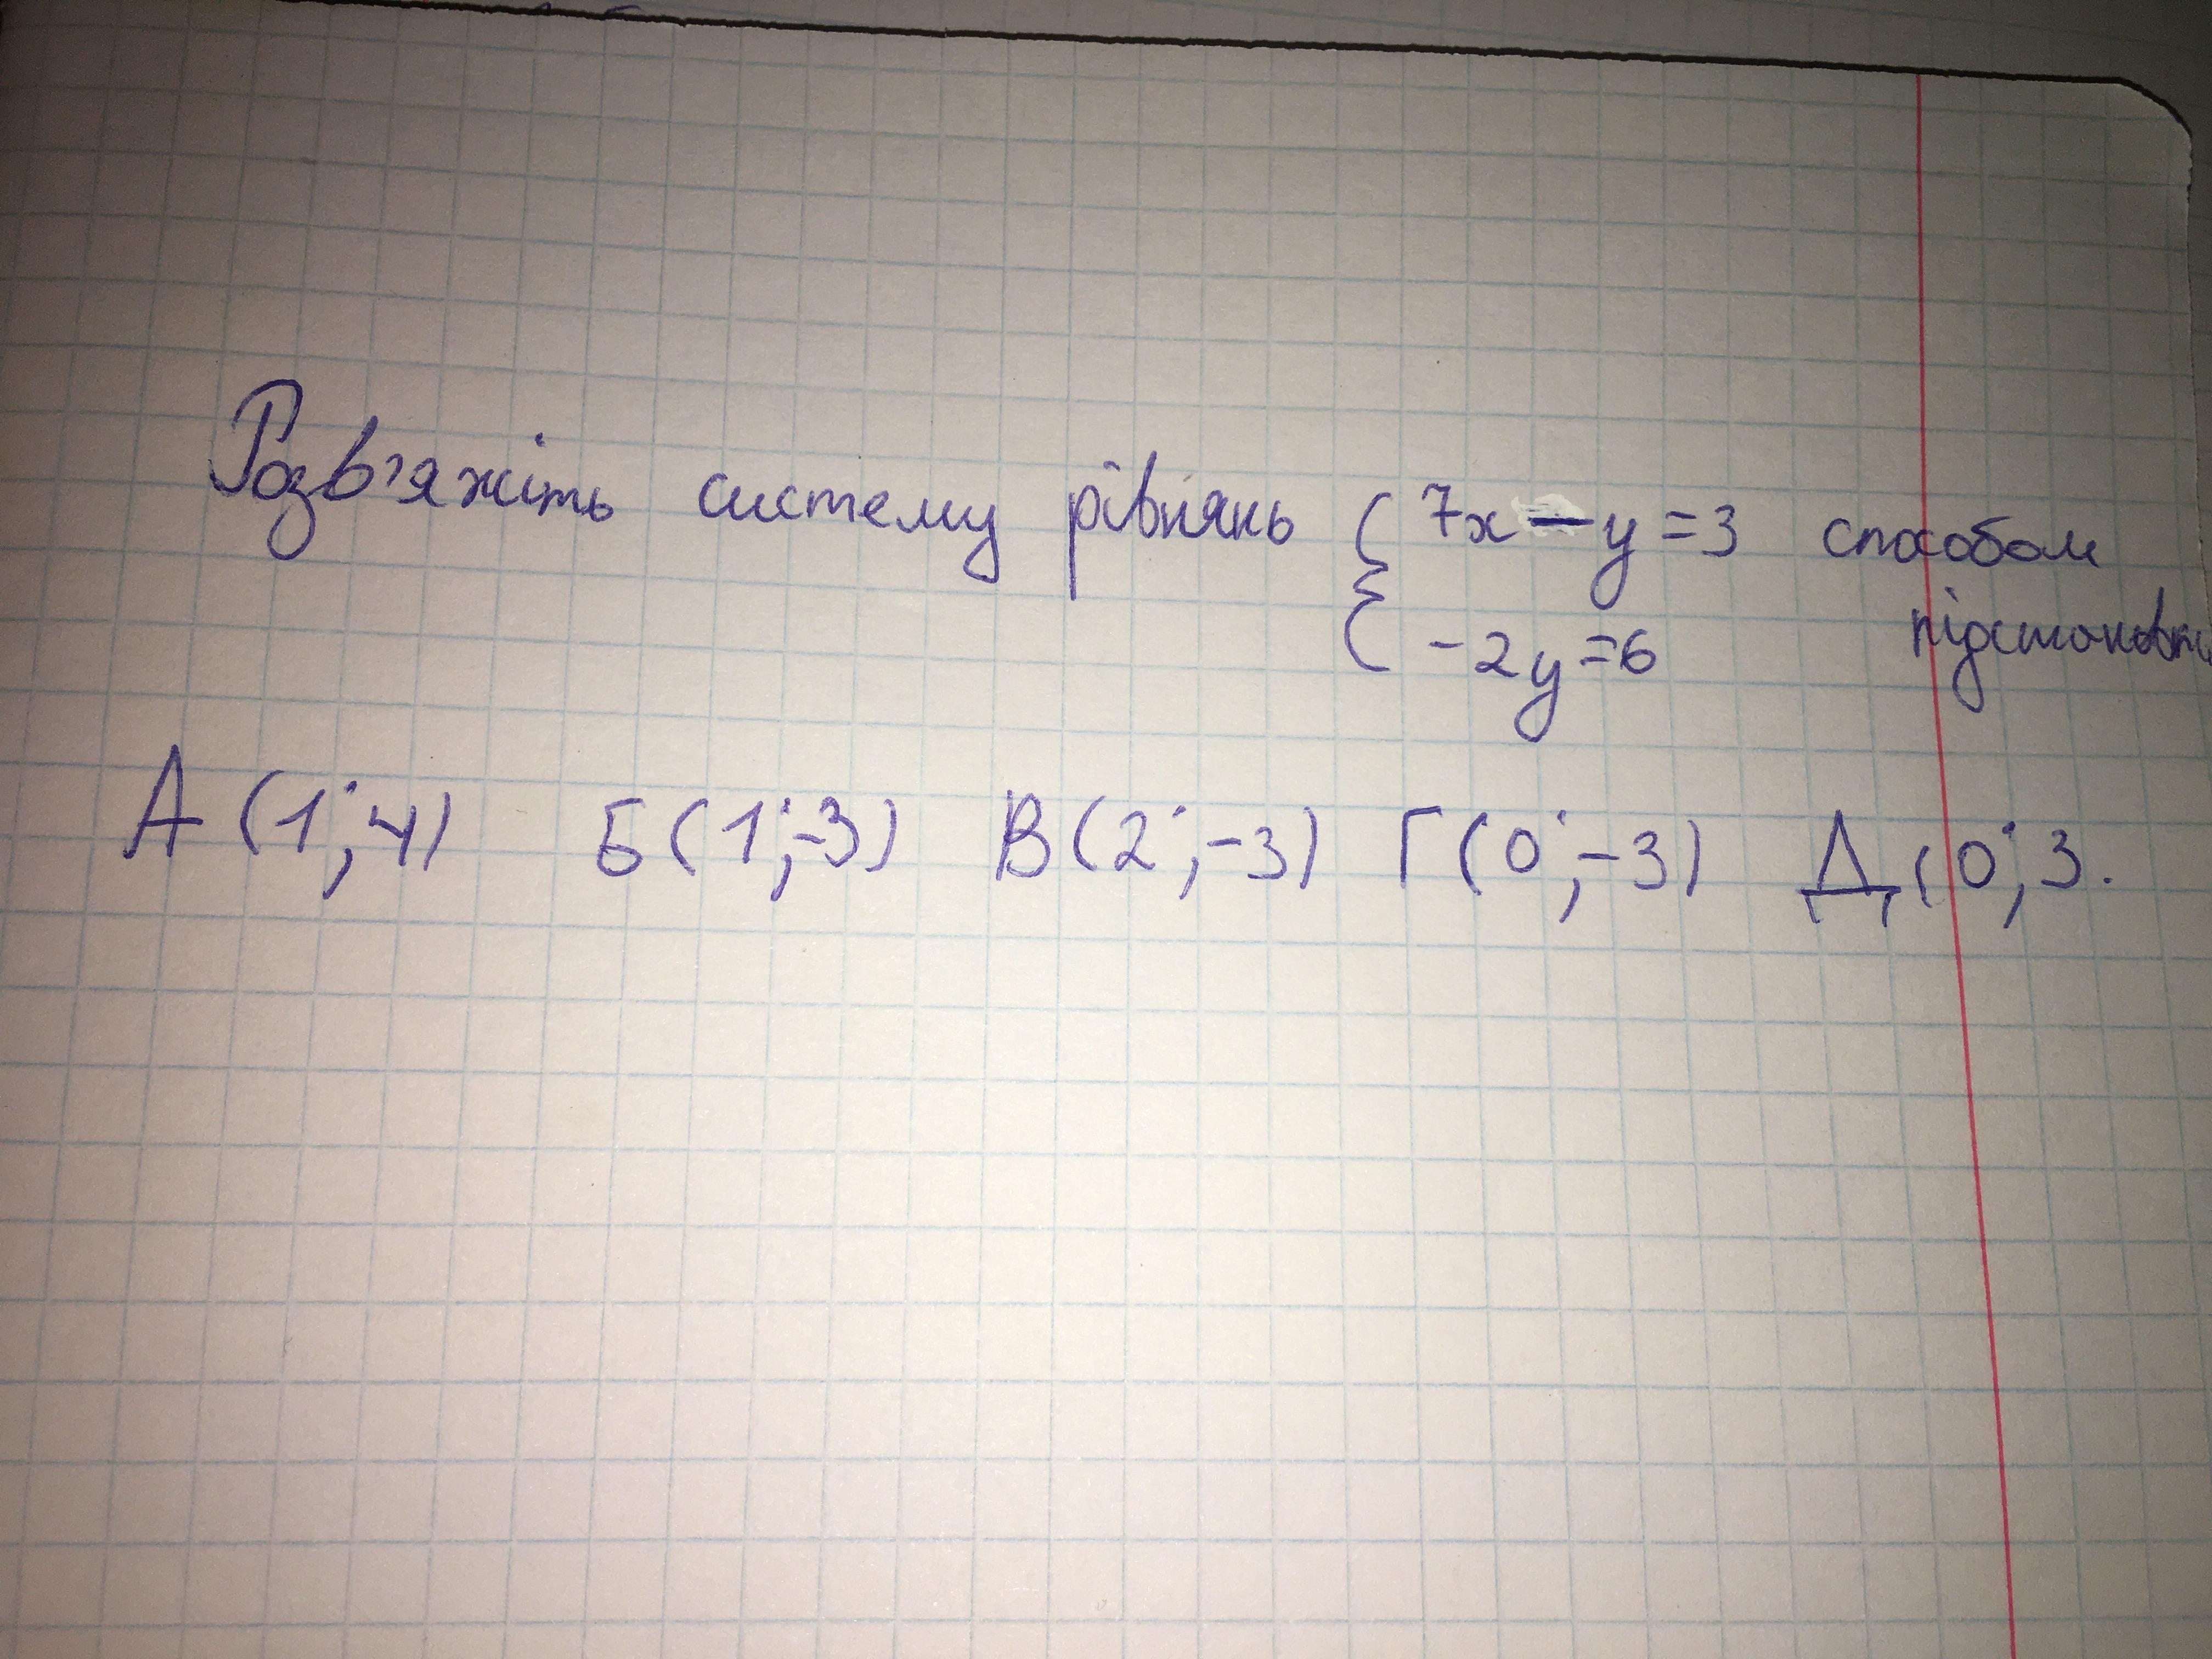 Розв'яжіть систему рівнянь { 7x - y = 3 способом
-2y = 6 підстановки
А (1; 4) Б (1; -3) В (2; -3) Г (0; -3) Д (0; 3.